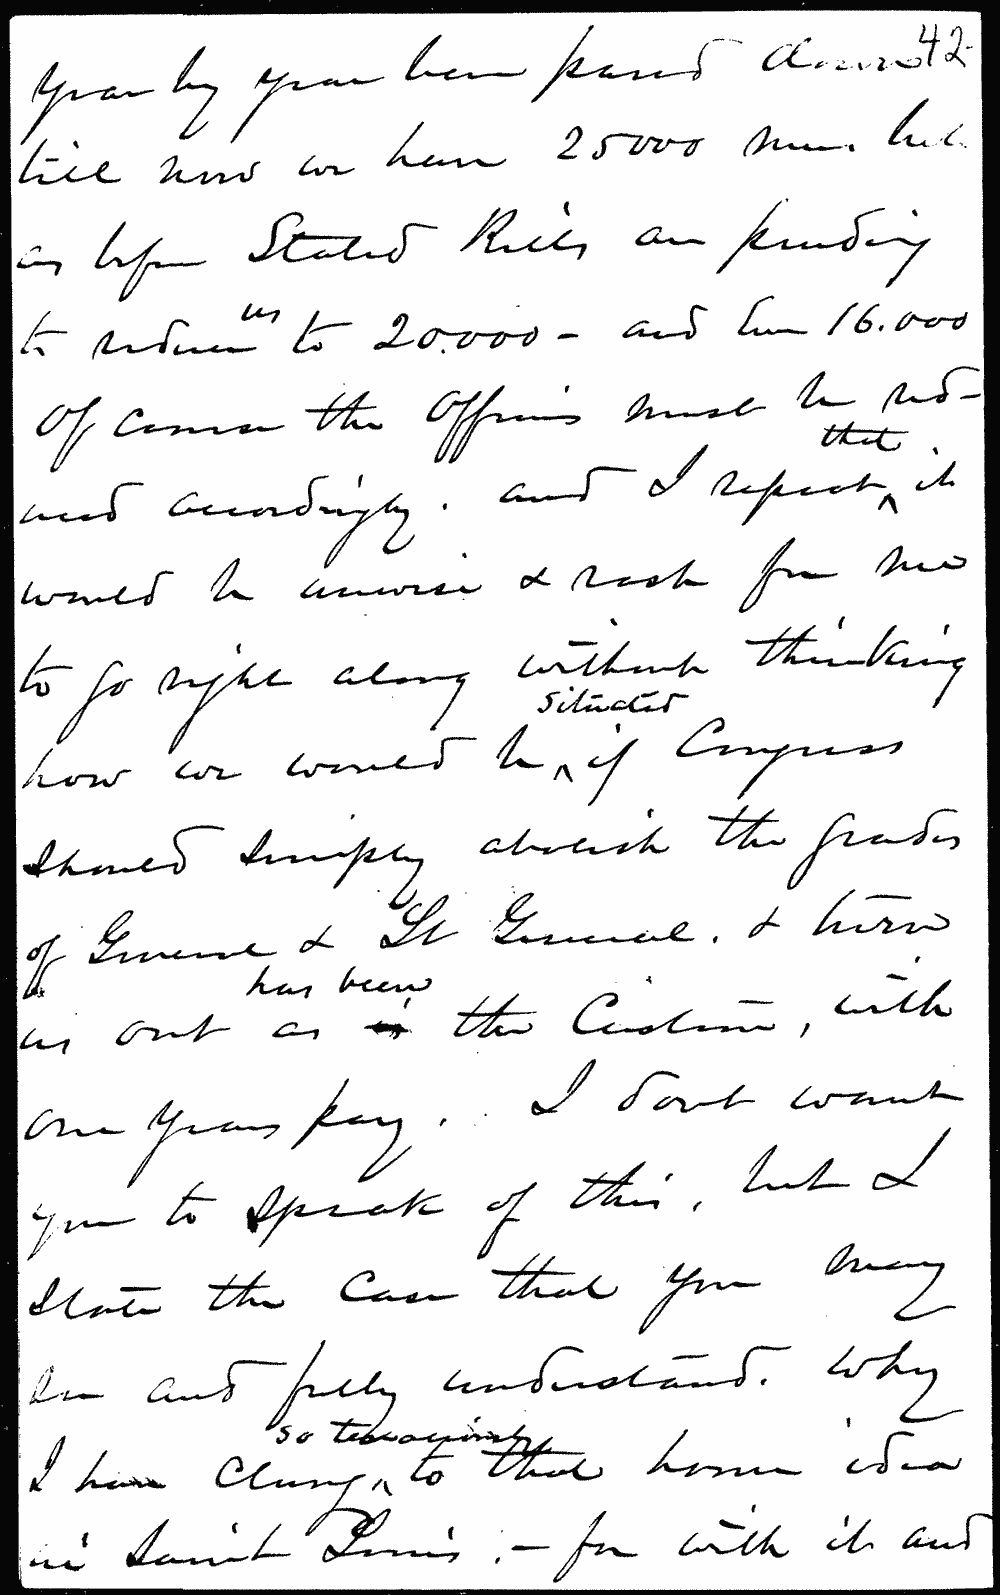 42
year by year been pared down
till now we have 25000 men. but
as before Stated Bills are pending
us
to reduce to 20.000 - and even 16.000
Of course the Officers must be red-
that
uced accordingly. and I repeat ^ it
would be unwise & rash for me
to go right along without thinking
situated
how we would be ^ if Congress
should simply abolish the grades
of General & Lt General. & turn
has been
us out as is the Custom, with
one years pay. I dont want
you to speak of this, but I
state the Case that you may
see and fully understand. why
so tenaciously
I have Clung ^ to that home idea
in Saint Louis. - for with it and